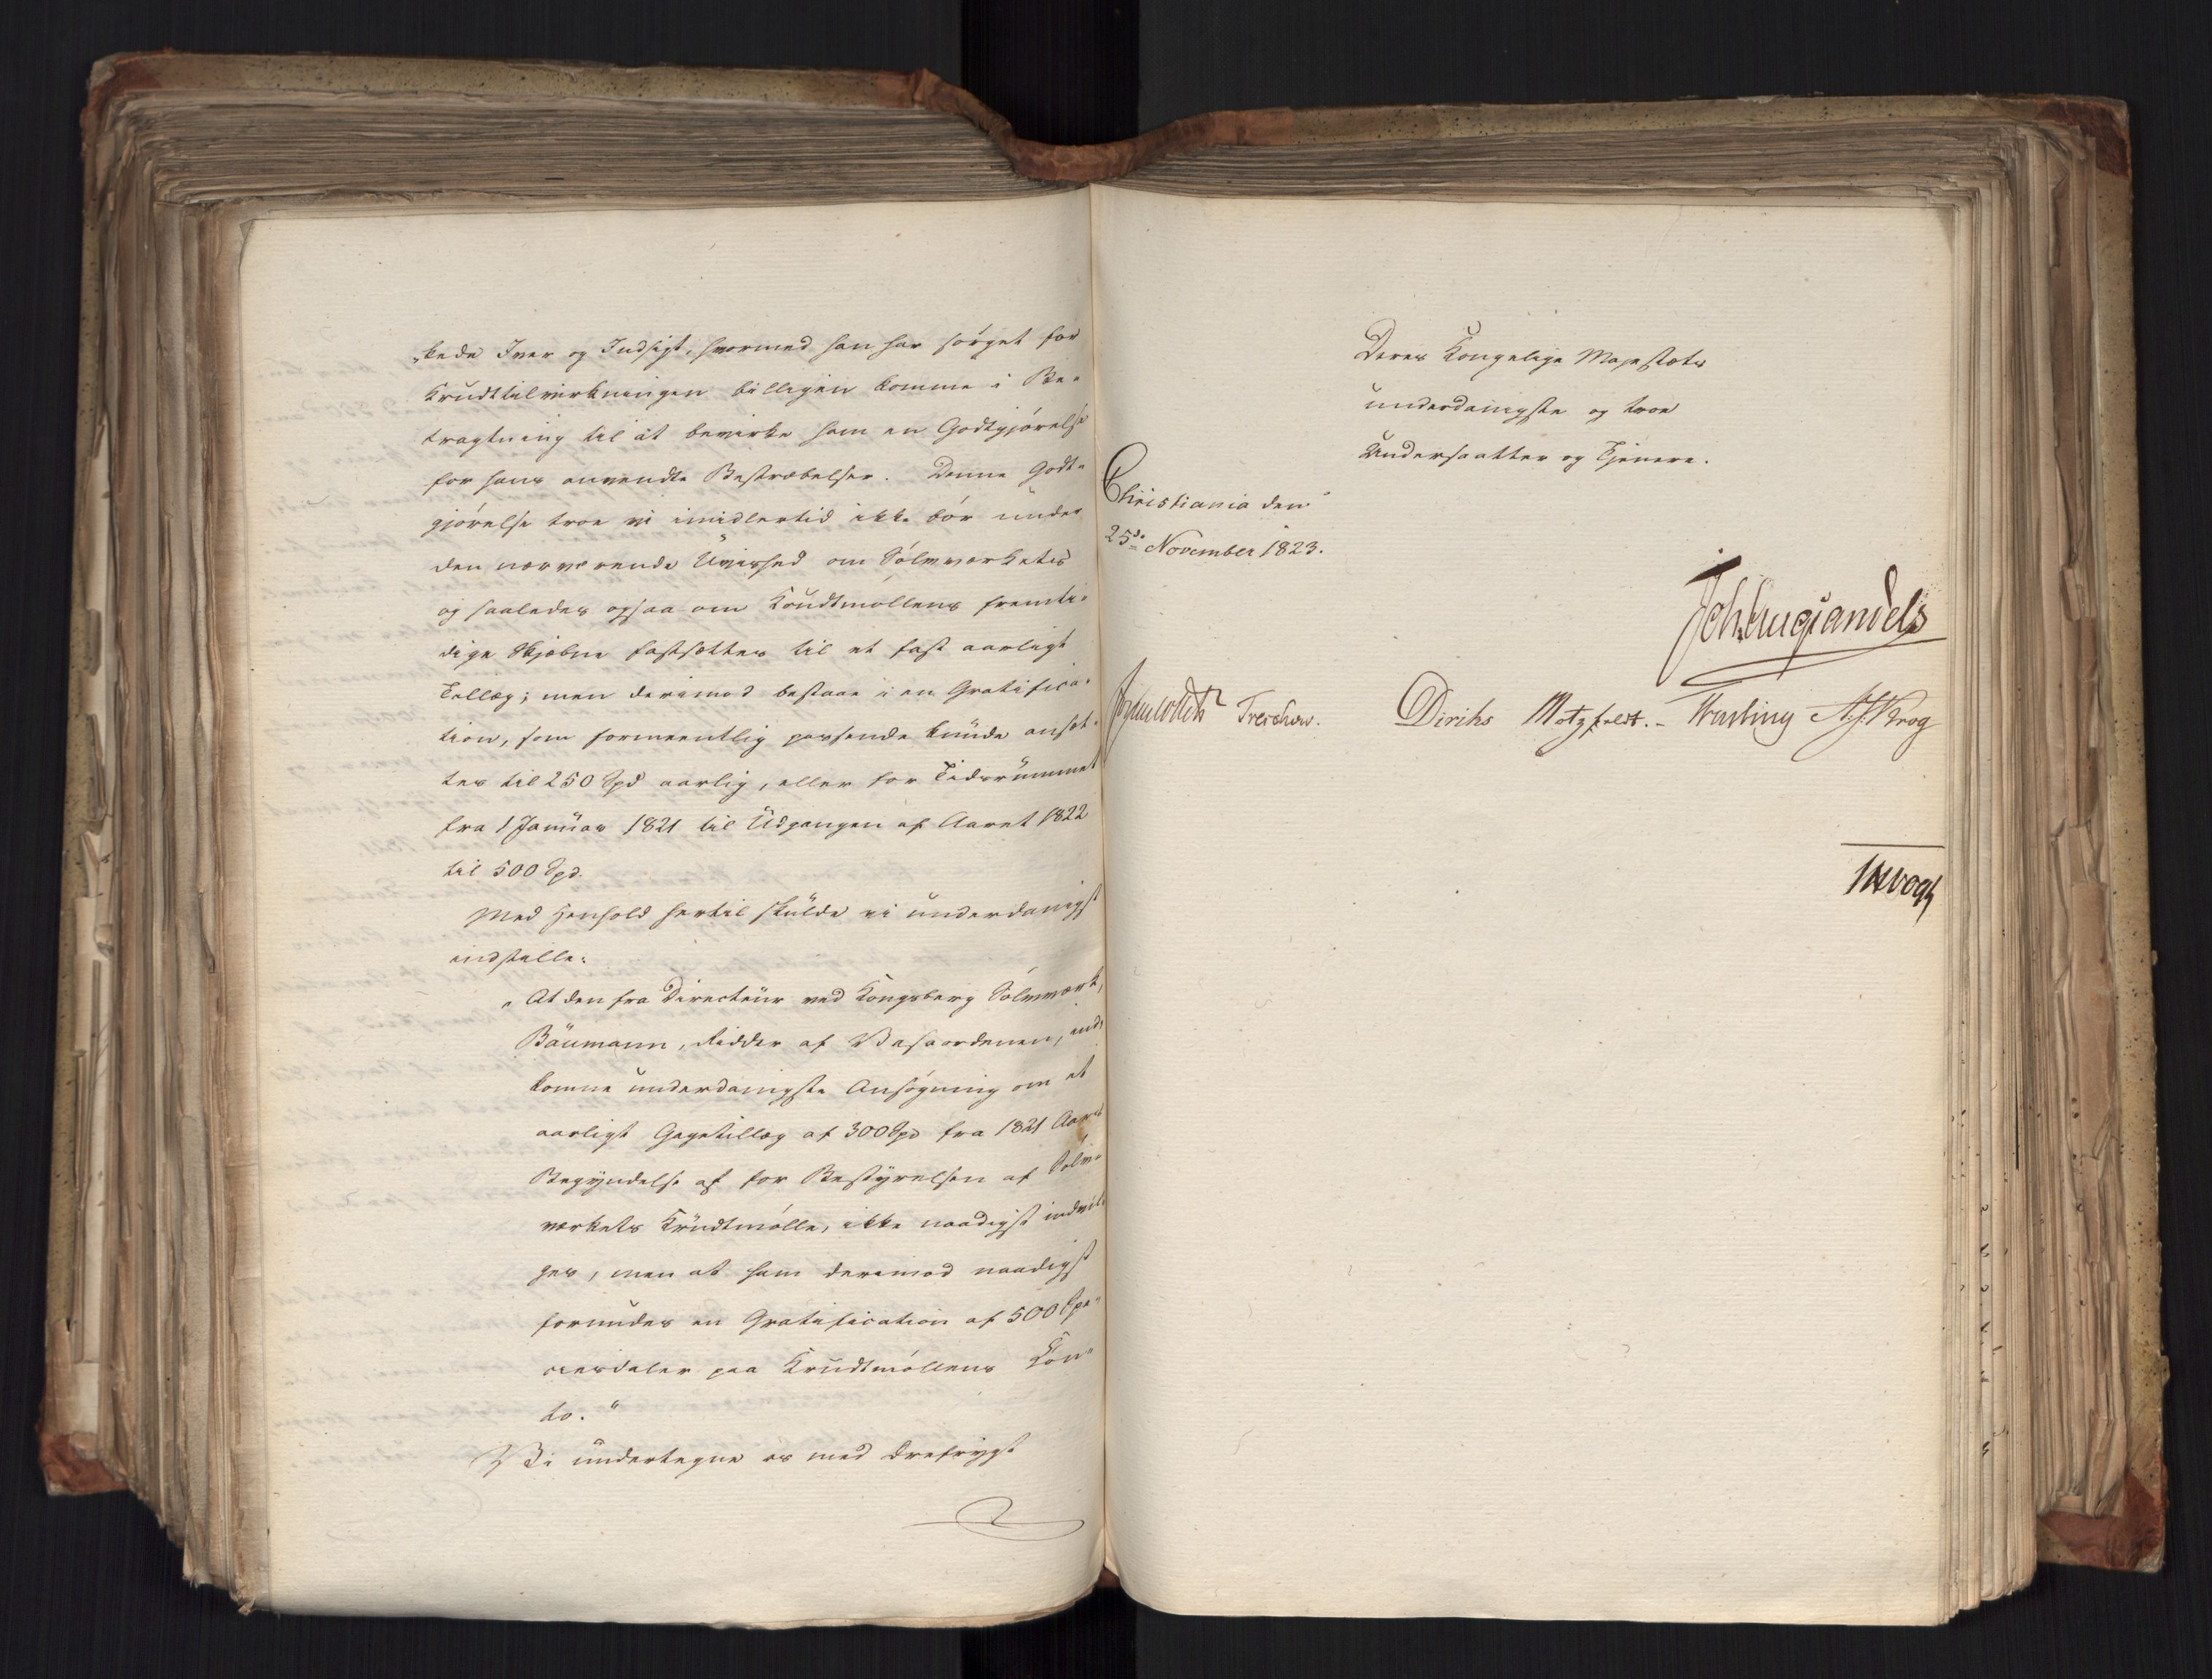 „kede Iver og Indsigt, hvormed han har sørget for
Krudttilvirkningen billigen komme i Be„
tragtning til at bevirke ham en Godtgjørelse
for hans anvendte Bestræbelser. Denne Godt„
gjørelse troe vi imidlertid ikke bør under
den nærværende Uvished om Sølvværkets
og saaledes ogsaa om Krudtmøllens fremti„
dige Skjæbne fastsættes til et fast aarligt
Tillæg; men derimod bestaae i en Gratifica„
tion, som formeentlig passende kunde ansæt„
tes til 250 Spd aarlig, eller for Tidsrummet
fra 1 Januar 1821 til Udgangen af Aaret 1822
til 500 Spd.
Med Henhold hertil skulde vi underdanigst
indstille:
„At den fra Directeur ved Kongsberg Sølvværk,
Bäumann, Ridder af Wasaordenen, ind„
komne underdanigste Ansøgning om et
aarligt Gagetillæg af 300 Spd fra 1821 Aars
Begyndelse af for Bestyrelsen af Sølv„
værkets Krudtmølle, ikke naadigst indvil„
ges, men at ham derimod naadigst
forundes en Gratification af 500 Spe„
ciesdaler paa Krudtmøllens Con„
to."
Vi undertegne os med Ærefrygt
Deres Kongelige Majestæts
underdanigste og troe
Undersaatter og Tjenere.
Christiania den
25de November 1823.
Joh. Aug. Sandels
Jonas Collett Treschow. Diriks Motzfeldt. Fasting A. S. Krog
J H Vogt